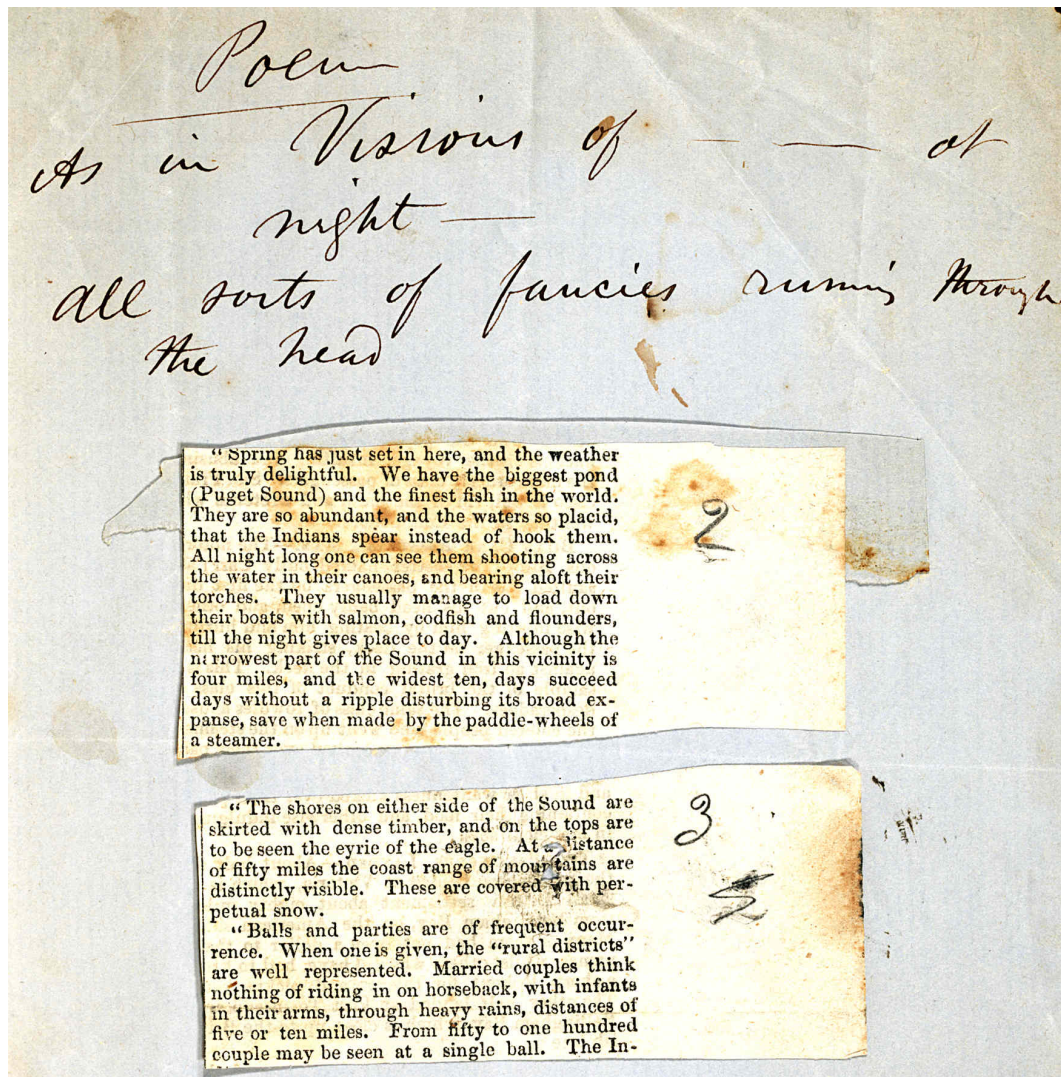 Poem
As in Visions of — — at
night —
All sorts of fancies runing through
the head
" Spring has just set in here, and the weather
is truly delightful. We have the biggest pond
(Puget Sound) and the finest fish in the world.
They are so abundant, and the waters so placid,
that the Indians spear instead of hook them.
All night long one can see them shooting across
the water in their canoes, and bearing aloft their
torches. They usually manage to load down
their boats with salmon, codfish and flounders,
till the night gives place to day. Although the
narrowest part of the Sound in this vicinity is
four miles, and the widest ten, days succeed
days without a ripple disturbing its broad ex-
panse, save when made by the paddle-wheels of
a steamer.
2
" The shores on either side of the Sound are
skirted with dense timber, and on the tops are
to be seen the eyrie of the eagle. At a distance
of fifty miles the coast range of mountains are
distinctly visible. These are covered with per-
petual snow.
" Balls and parties are of frequent occur-
rence. When one is given, the "rural districts"
are well represented. Married couples think
nothing of riding in on horseback, with infants
in their arms, through heavy rains, distances of
five or ten miles. From fifty to one hundred
couple may be seen at a single ball. The In-
3